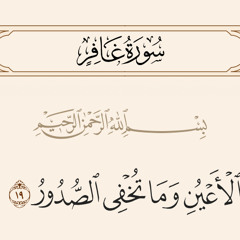 سُورَةُ غَافِرٍ
بِسْمِ اللَّهِ الرَّحْمَٰنِ الرَّحِيمِ
الْأَعْيُنِ وَمَا تُخْفِي الصُّدُورُ ١٩